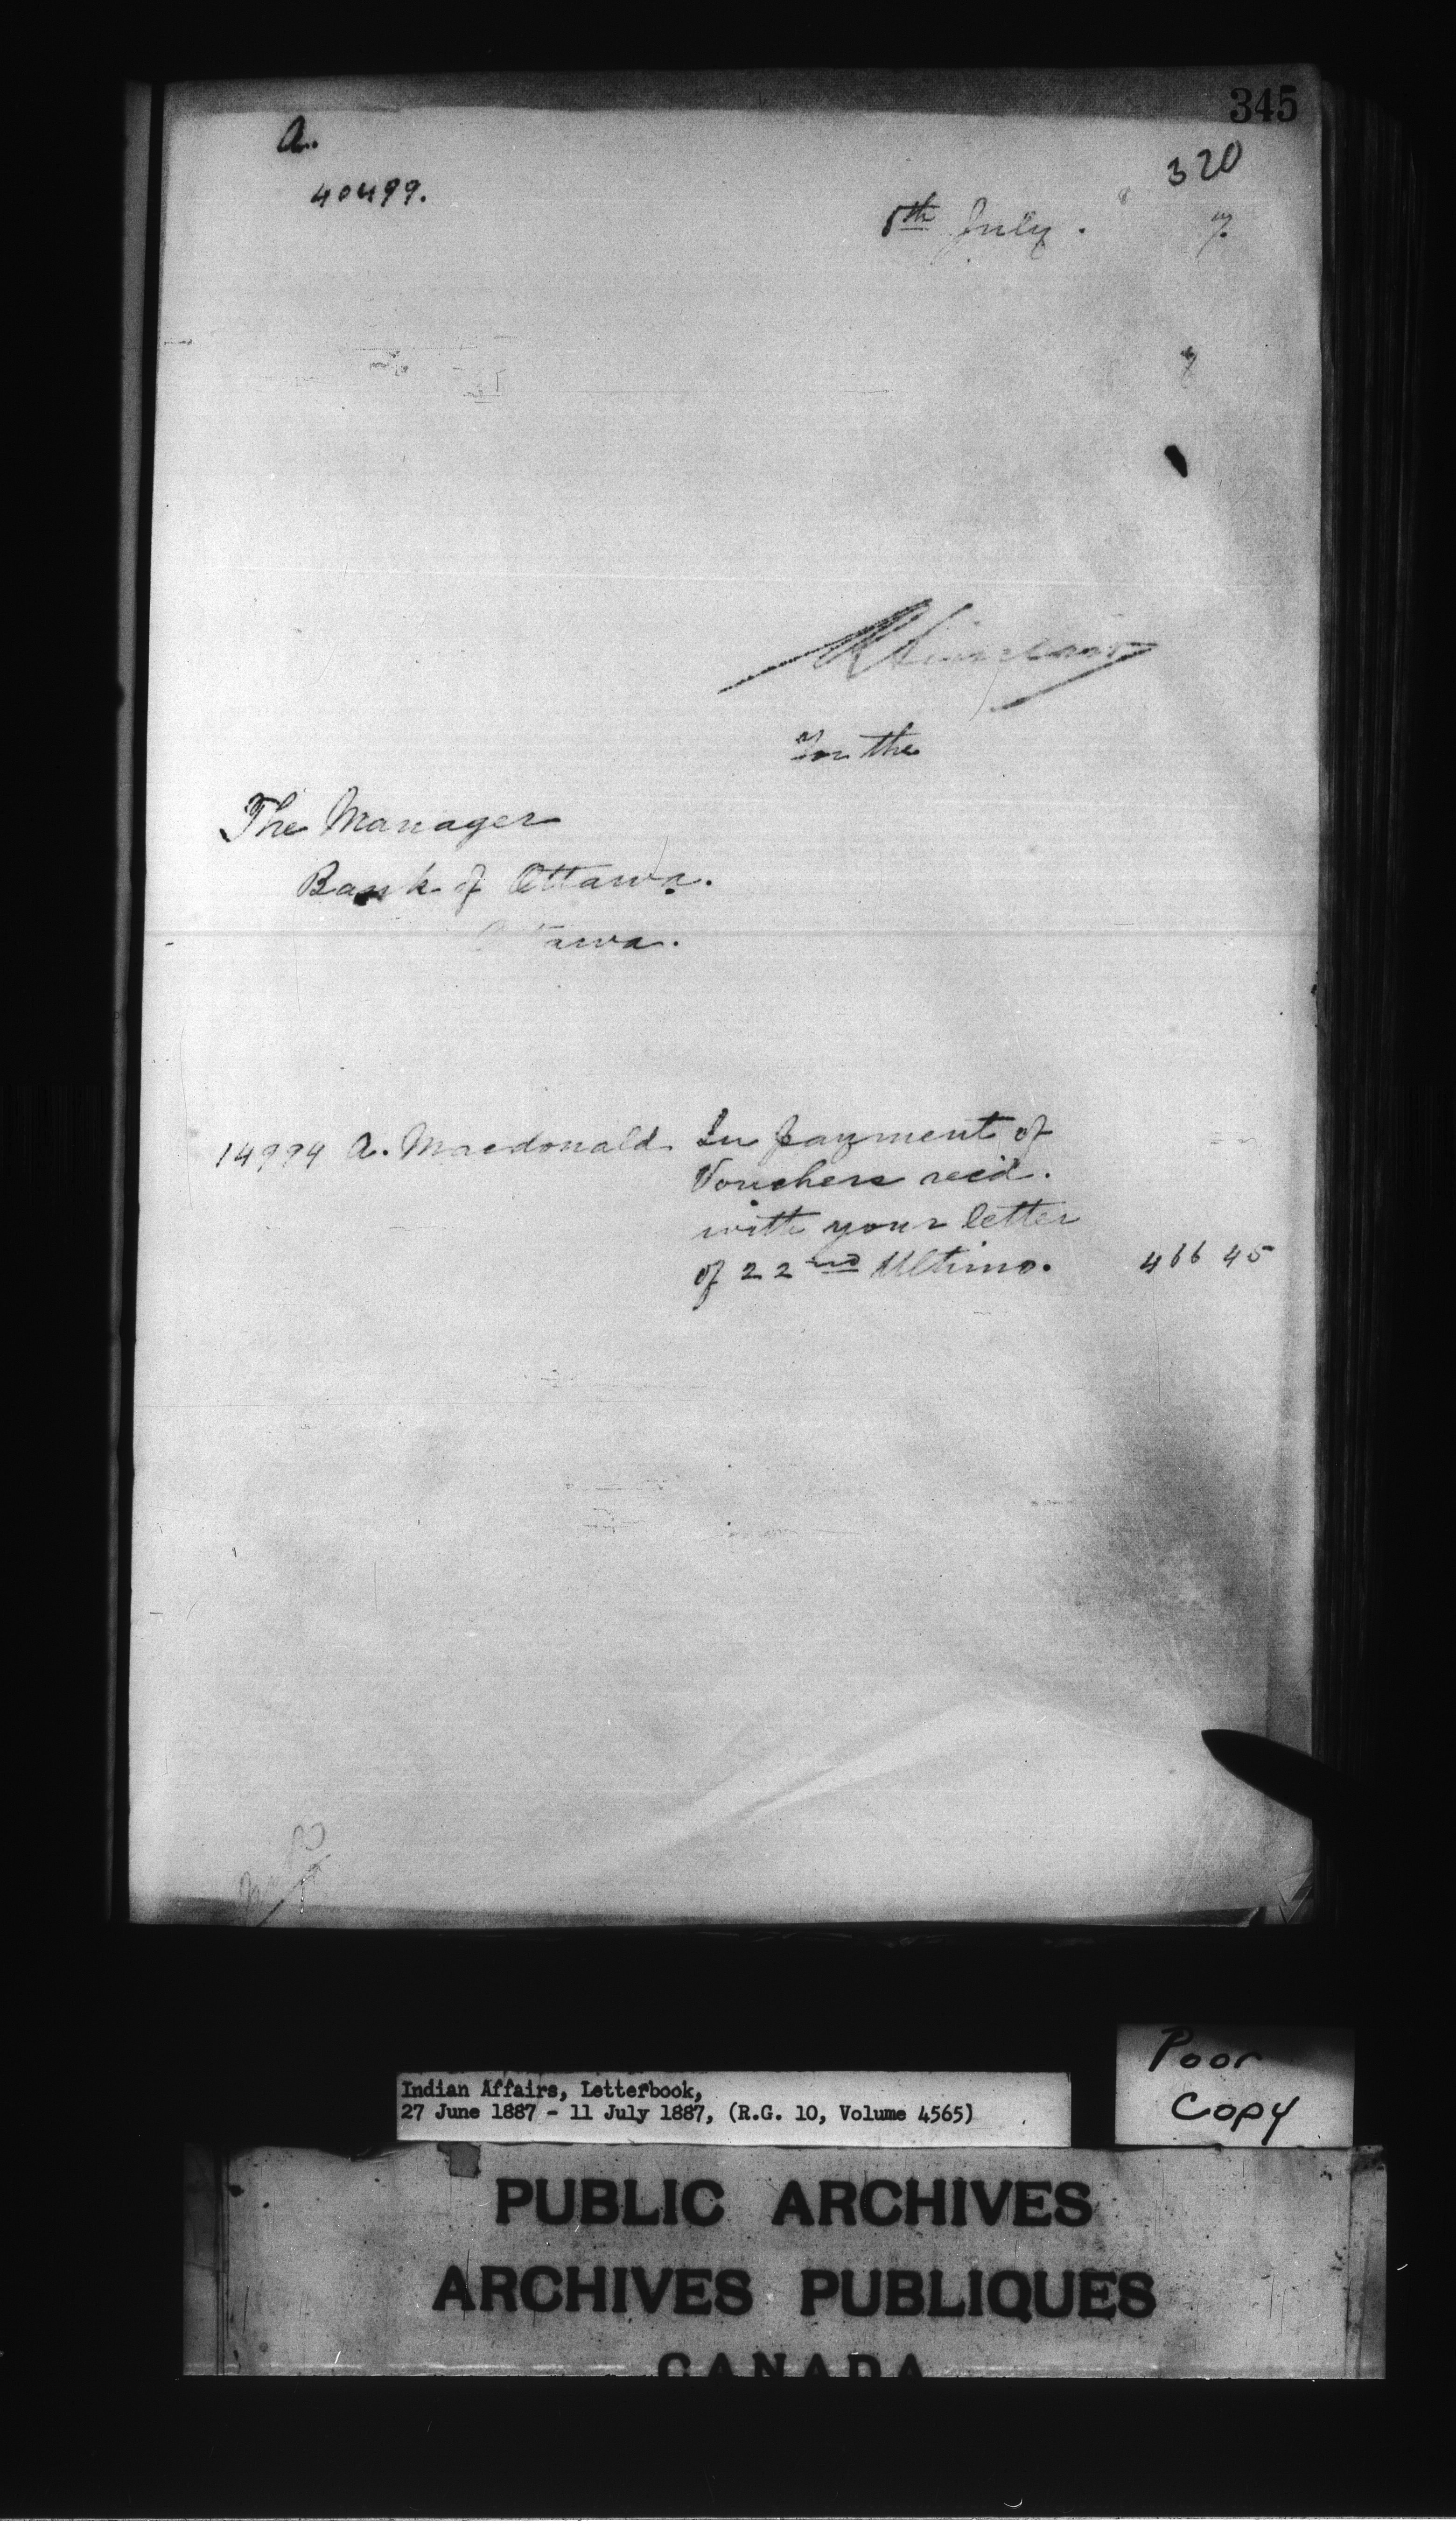 345
A.
320
40499.
8th July. 7.
For the
The Manager
Bank of Ottawa.
Ottawa.
14994 A. Macdonald In payment of
Vouchers recd.
with your letter
of 22nd Ultimo. 466 45
Poor
Copy
Indian Affairs, Letterbook,
27 June 1887 - 11 July 1887, (R.G. 10, Volume 4565)
PUBLIC ARCHIVES
ARCHIVES PUBLIQUES
CANADA